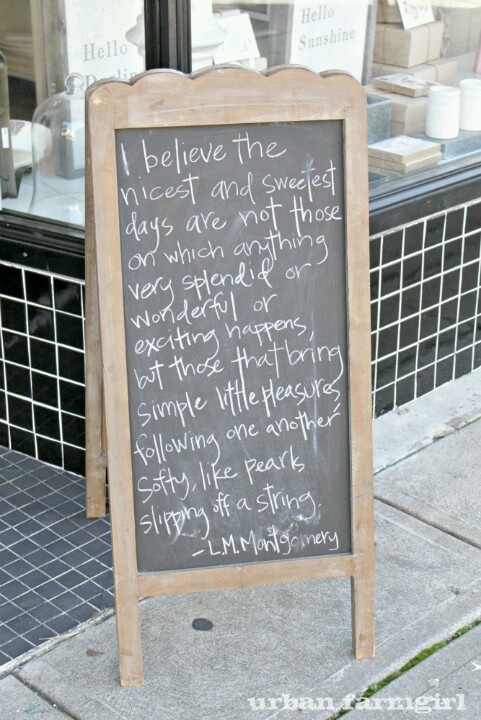 Hello
Darling
Hello
Sunshine
I believe the
nicest and sweetest
days are not those
on which anything
very splendid or
wonderful or
exciting happens,
but those that bring
simple little pleasures,
following one another
softly, like pearls
slipping off a string.
-L.M. Montgomery
urban farmgirl